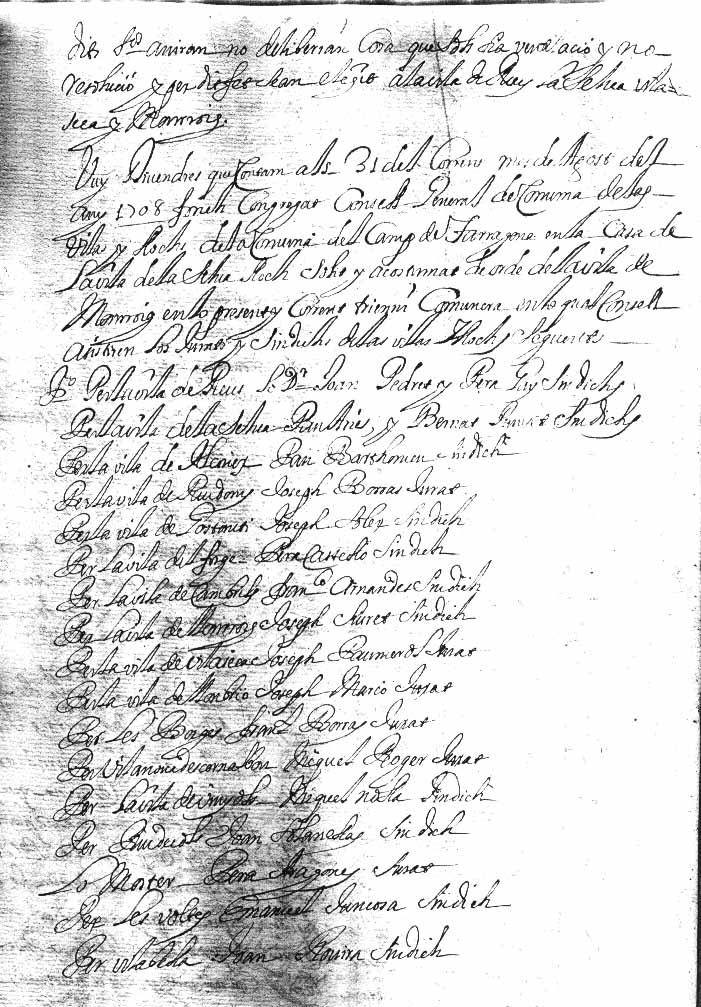 dits s.rs aniran no deliberian Cosa que sols sia y no
y per dit efecte han elegit a la vila de Reus la Selva Vila
seca y Monroig.
Vuy Divendres que Contam als 31 del Corrent mes de Agost del
any 1708 fonch Congregat Consell General de Comuna de las
Vilas y Llochs de la Comuna del Camp de Tarragona en la Casa de
la vila de la Selva lloch solit y acostumat de orde de la vila de
Monroig en lo present y Corrent trienni Comunera en lo qual Consell
assistiren los Jurats y Sindichs de las vilas y llochs seguents
P.o Per la vila de Reus lo D.r Joan Pedret y Pera Gay Sindichs
Per la vila de la Selva Pau y Bernat Sindichs
Per la vila de Alcover Pau Barthomeu Sindich
Per la vila de Riudoms Joseph Borras Jurat
Per la vila de Joseph Sindich
Per la vila del Pera Castelló Sindich
Per la vila de Cambrils Arnandes Sindich
Per la vila de Monroig Joseph Sindich
Per la vila de Vilaseca Joseph Jurat
Per la vila de Monbrio Joseph Marco Jurat
Per Les Borges Borras Jurat
Per Vilanova descornalbou Miquel Roger Jurat
Per la vila de Vinyols Miquel Sindich
Per Riudecols Joan Sindich
Lo Morter Pera Aragones Jurat
Per Les voltes Emanuel Juncosa Sindich
Per vilabela Joan Rovira Sindich